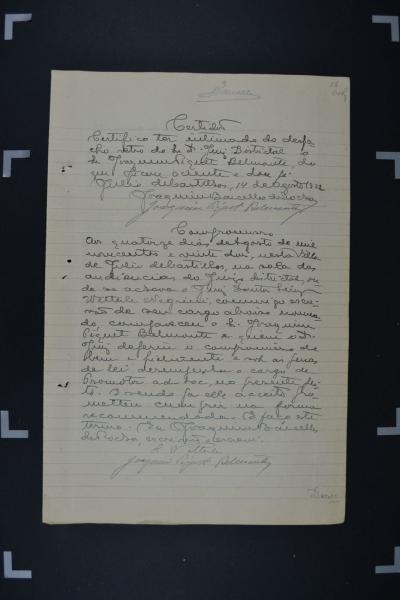 Certidão
Certifico ter intimado do despa-
cho retro do Sr. Dr. Juiz Distrital o
Sr. Joaquim Piquet Belmonte, do
que ficou sciente e dou fé.
Julio de Castilhos, 14 de Agosto 1922
Joaquim
Joaquim Piquet Belmonte
Compromisso
Aos quatorze dias de Agosto de mil
novecentos e vinte dois, nesta Villa
de Julio de Castilhos, na sala das
audiencias do Juizo districtal, on-
de se achava o Juiz
commigo escri-
vão de seu cargo abaixo nomea-
do, compareceu o Sr. Joaquim
Piquet Belmonte a quem o Dr.
Juiz deferiu o compromisso de
bem e fielmente e sob as penas
da lei desempenhar o cargo de
Promotor ad-hoc, no presente fei-
to. E sendo por elle acceito, pro-
metteu cumprir na forma
recommendada. E faço este
termo. Eu Joaquim
escrivão, escrevi.
Joaquim Piquet Belmonte